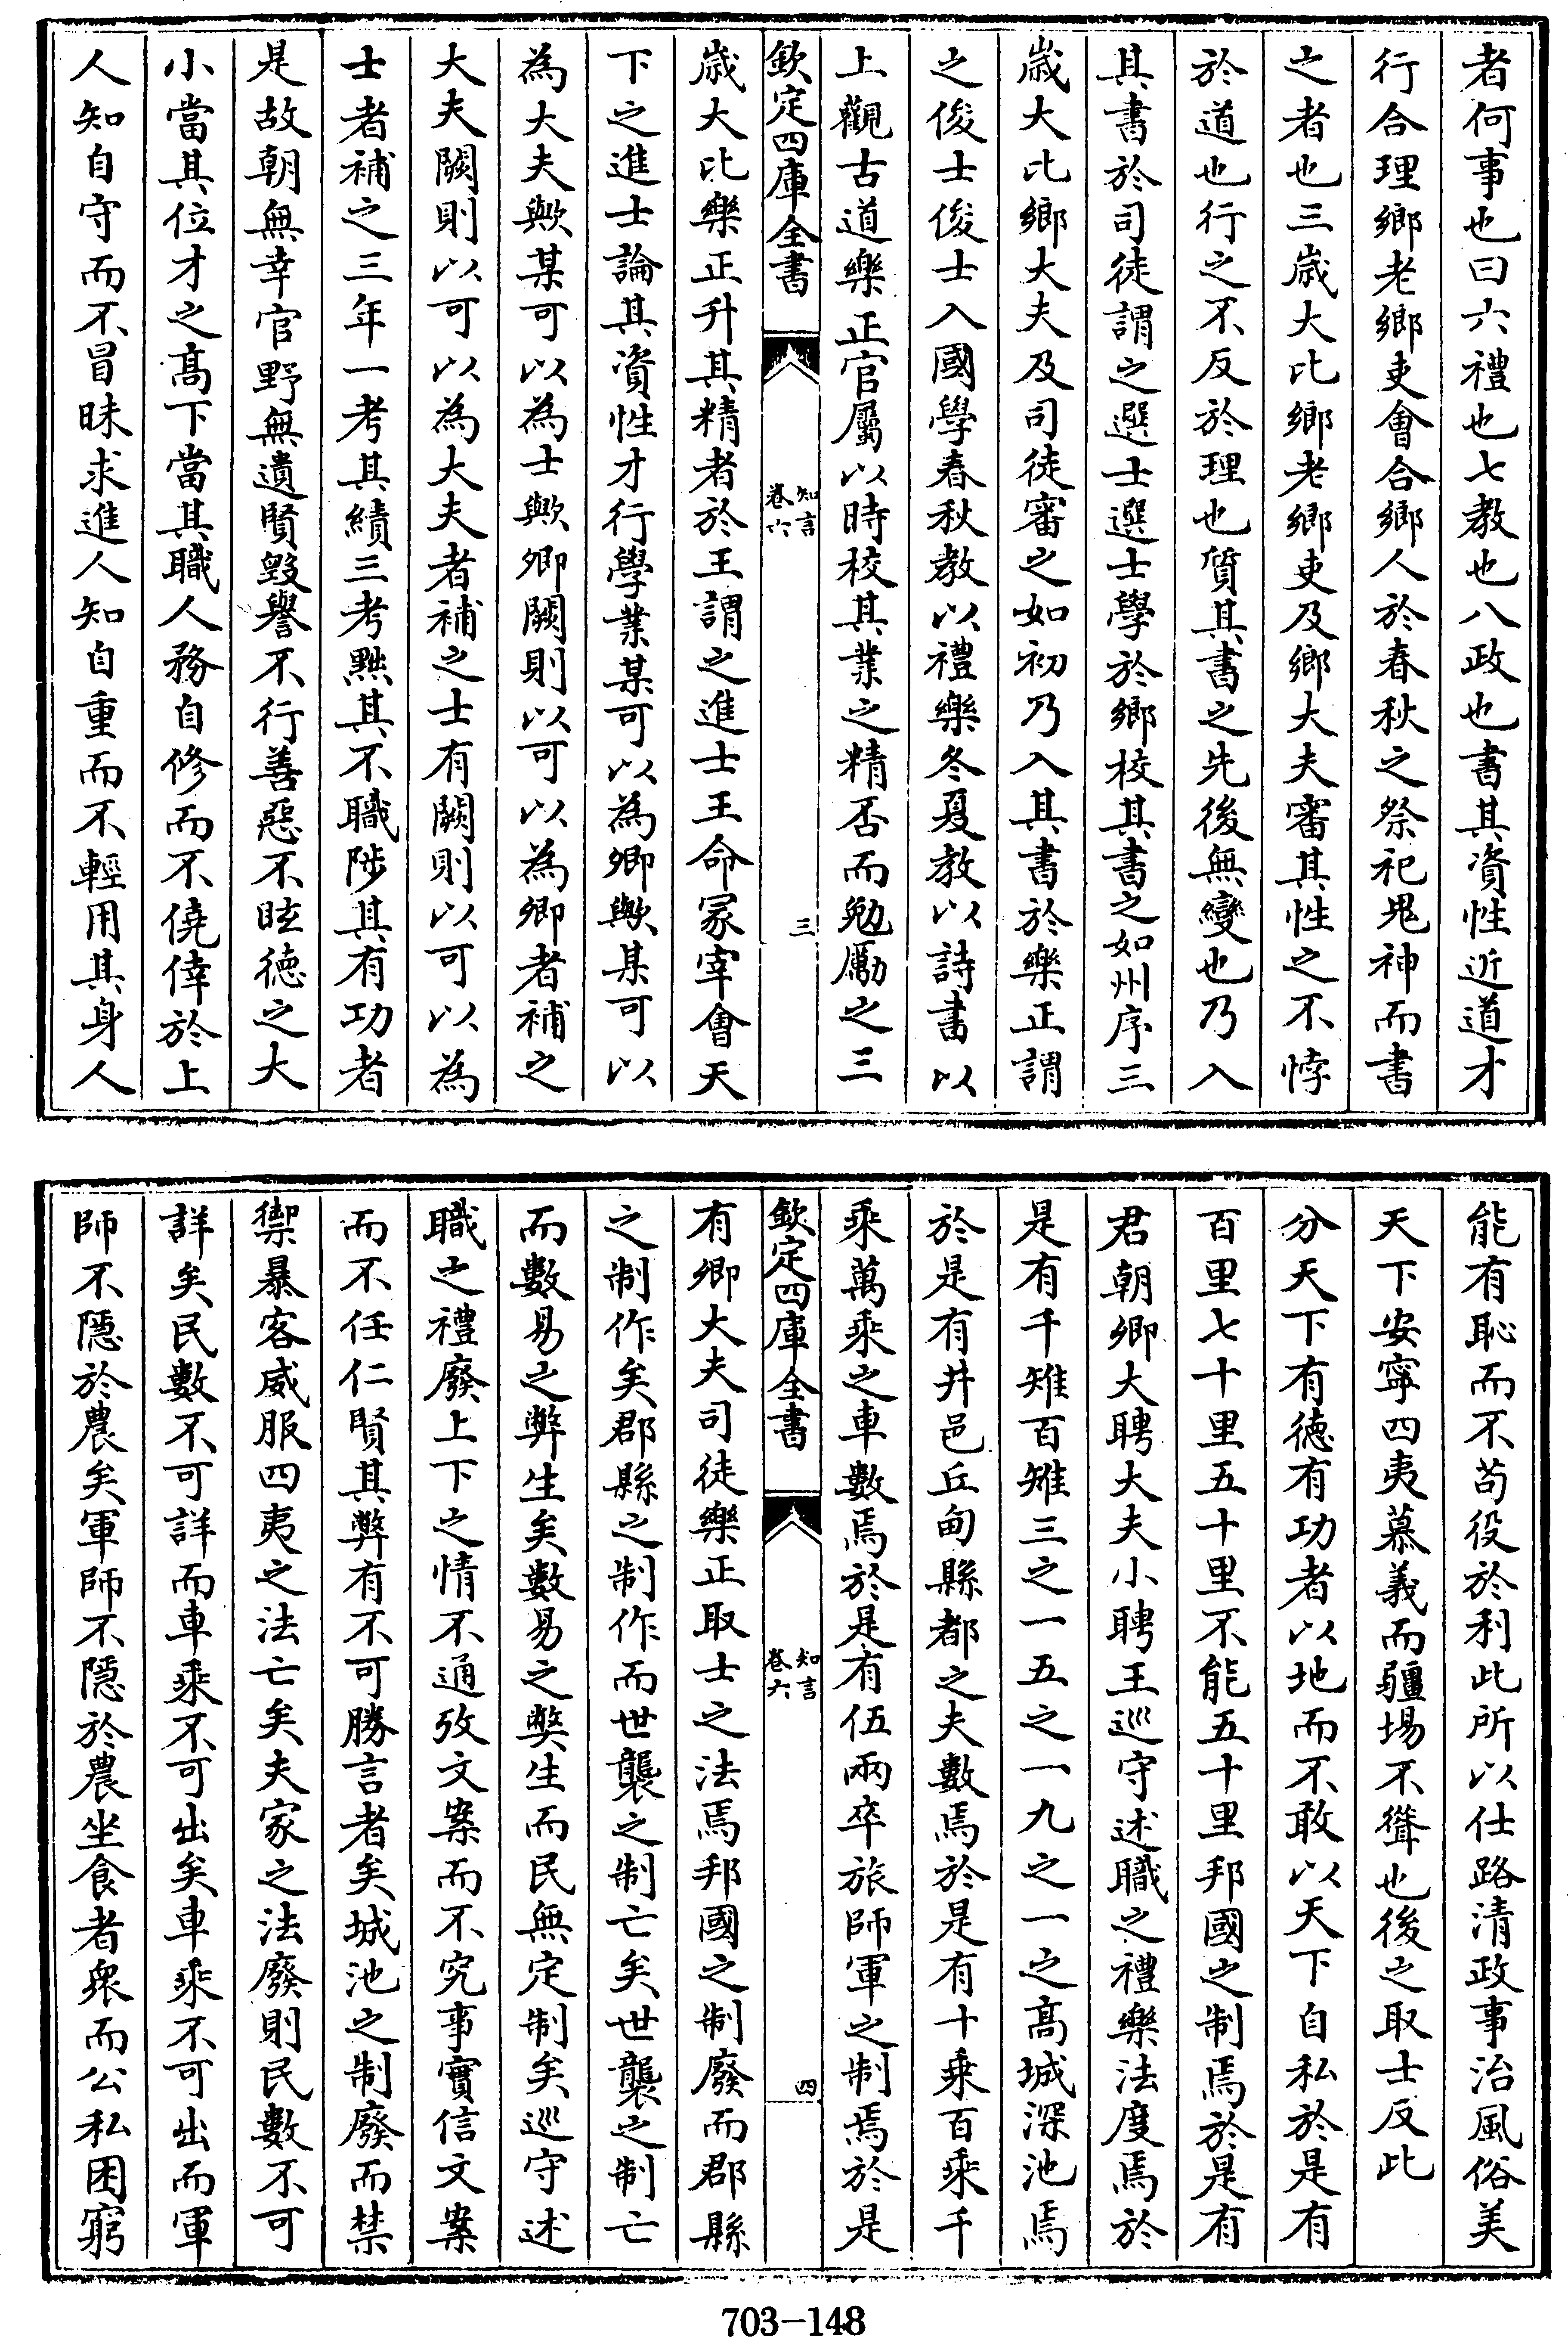 者何事也曰六禮也七教也八政也書其資性近道才
行合理鄉老鄉吏會合鄉人於春秋之祭祀鬼神而書
之者也三嵗大比鄉老鄉吏及鄉大夫審其性之不悖
於道也行之不反於理也質其書之先後無變也乃入
其書於司徒謂之選士選士學於鄉校其書之如州序三
嵗大比鄉大夫及司徒審之如初乃入其書於樂正謂
之俊士俊士入國學春秋教以禮樂冬夏教以詩書以
上觀古道樂正官屬以時校其業之精否而勉勵之三
欽定四庫全書
知言
卷六
三
嵗大比樂正升其精者於王謂之進士王命冢宰會天
下之進士論其資性才行學業某可以為卿歟某可以
為大夫歟某可以為士歟卿闕則以可以為卿者補之
大夫闕則以可以為大夫者補之士有闕則以可以為
士者補之三年一考其績三考黜其不職陟其有功者
是故朝無幸官野無遺賢毁譽不行善惡不眩德之大
小當其位才之髙下當其職人務自修而不僥倖於上
人知自守而不冒昧求進人知自重而不輕用其身人
能有恥而不苟役於利此所以仕路清政事治風俗美
天下安寧四夷慕義而疆埸不聳也後之取士反此
分天下有德有功者以地而不敢以天下自私於是有
百里七十里五十里不能五十里邦國之制焉於是有
君朝卿大聘大夫小聘王巡守述職之禮樂法度焉於
是有千雉百雉三之一五之一九之一之髙城深池焉
於是有井邑丘甸縣都之夫數焉於是有十乘百乘千
乘萬乘之車數焉於是有伍兩卒旅師軍之制焉於是
欽定四庫全書
知言
卷六
四
有卿大夫司徒樂正取士之法焉邦國之制廢而郡縣
之制作矣郡縣之制作而世襲之制亡矣世襲之制亡
而數易之弊生矣數易之弊生而民無定制矣巡守述
職之禮廢上下之情不通攷文案而不究事實信文案
而不任仁賢其弊有不可勝言者矣城池之制廢而禁
禦暴客威服四夷之法亡矣夫家之法廢則民數不可
詳矣民數不可詳而車乘不可出矣車乘不可出而軍
師不隱於農矣軍師不隱於農坐食者衆而公私困窮
703-148